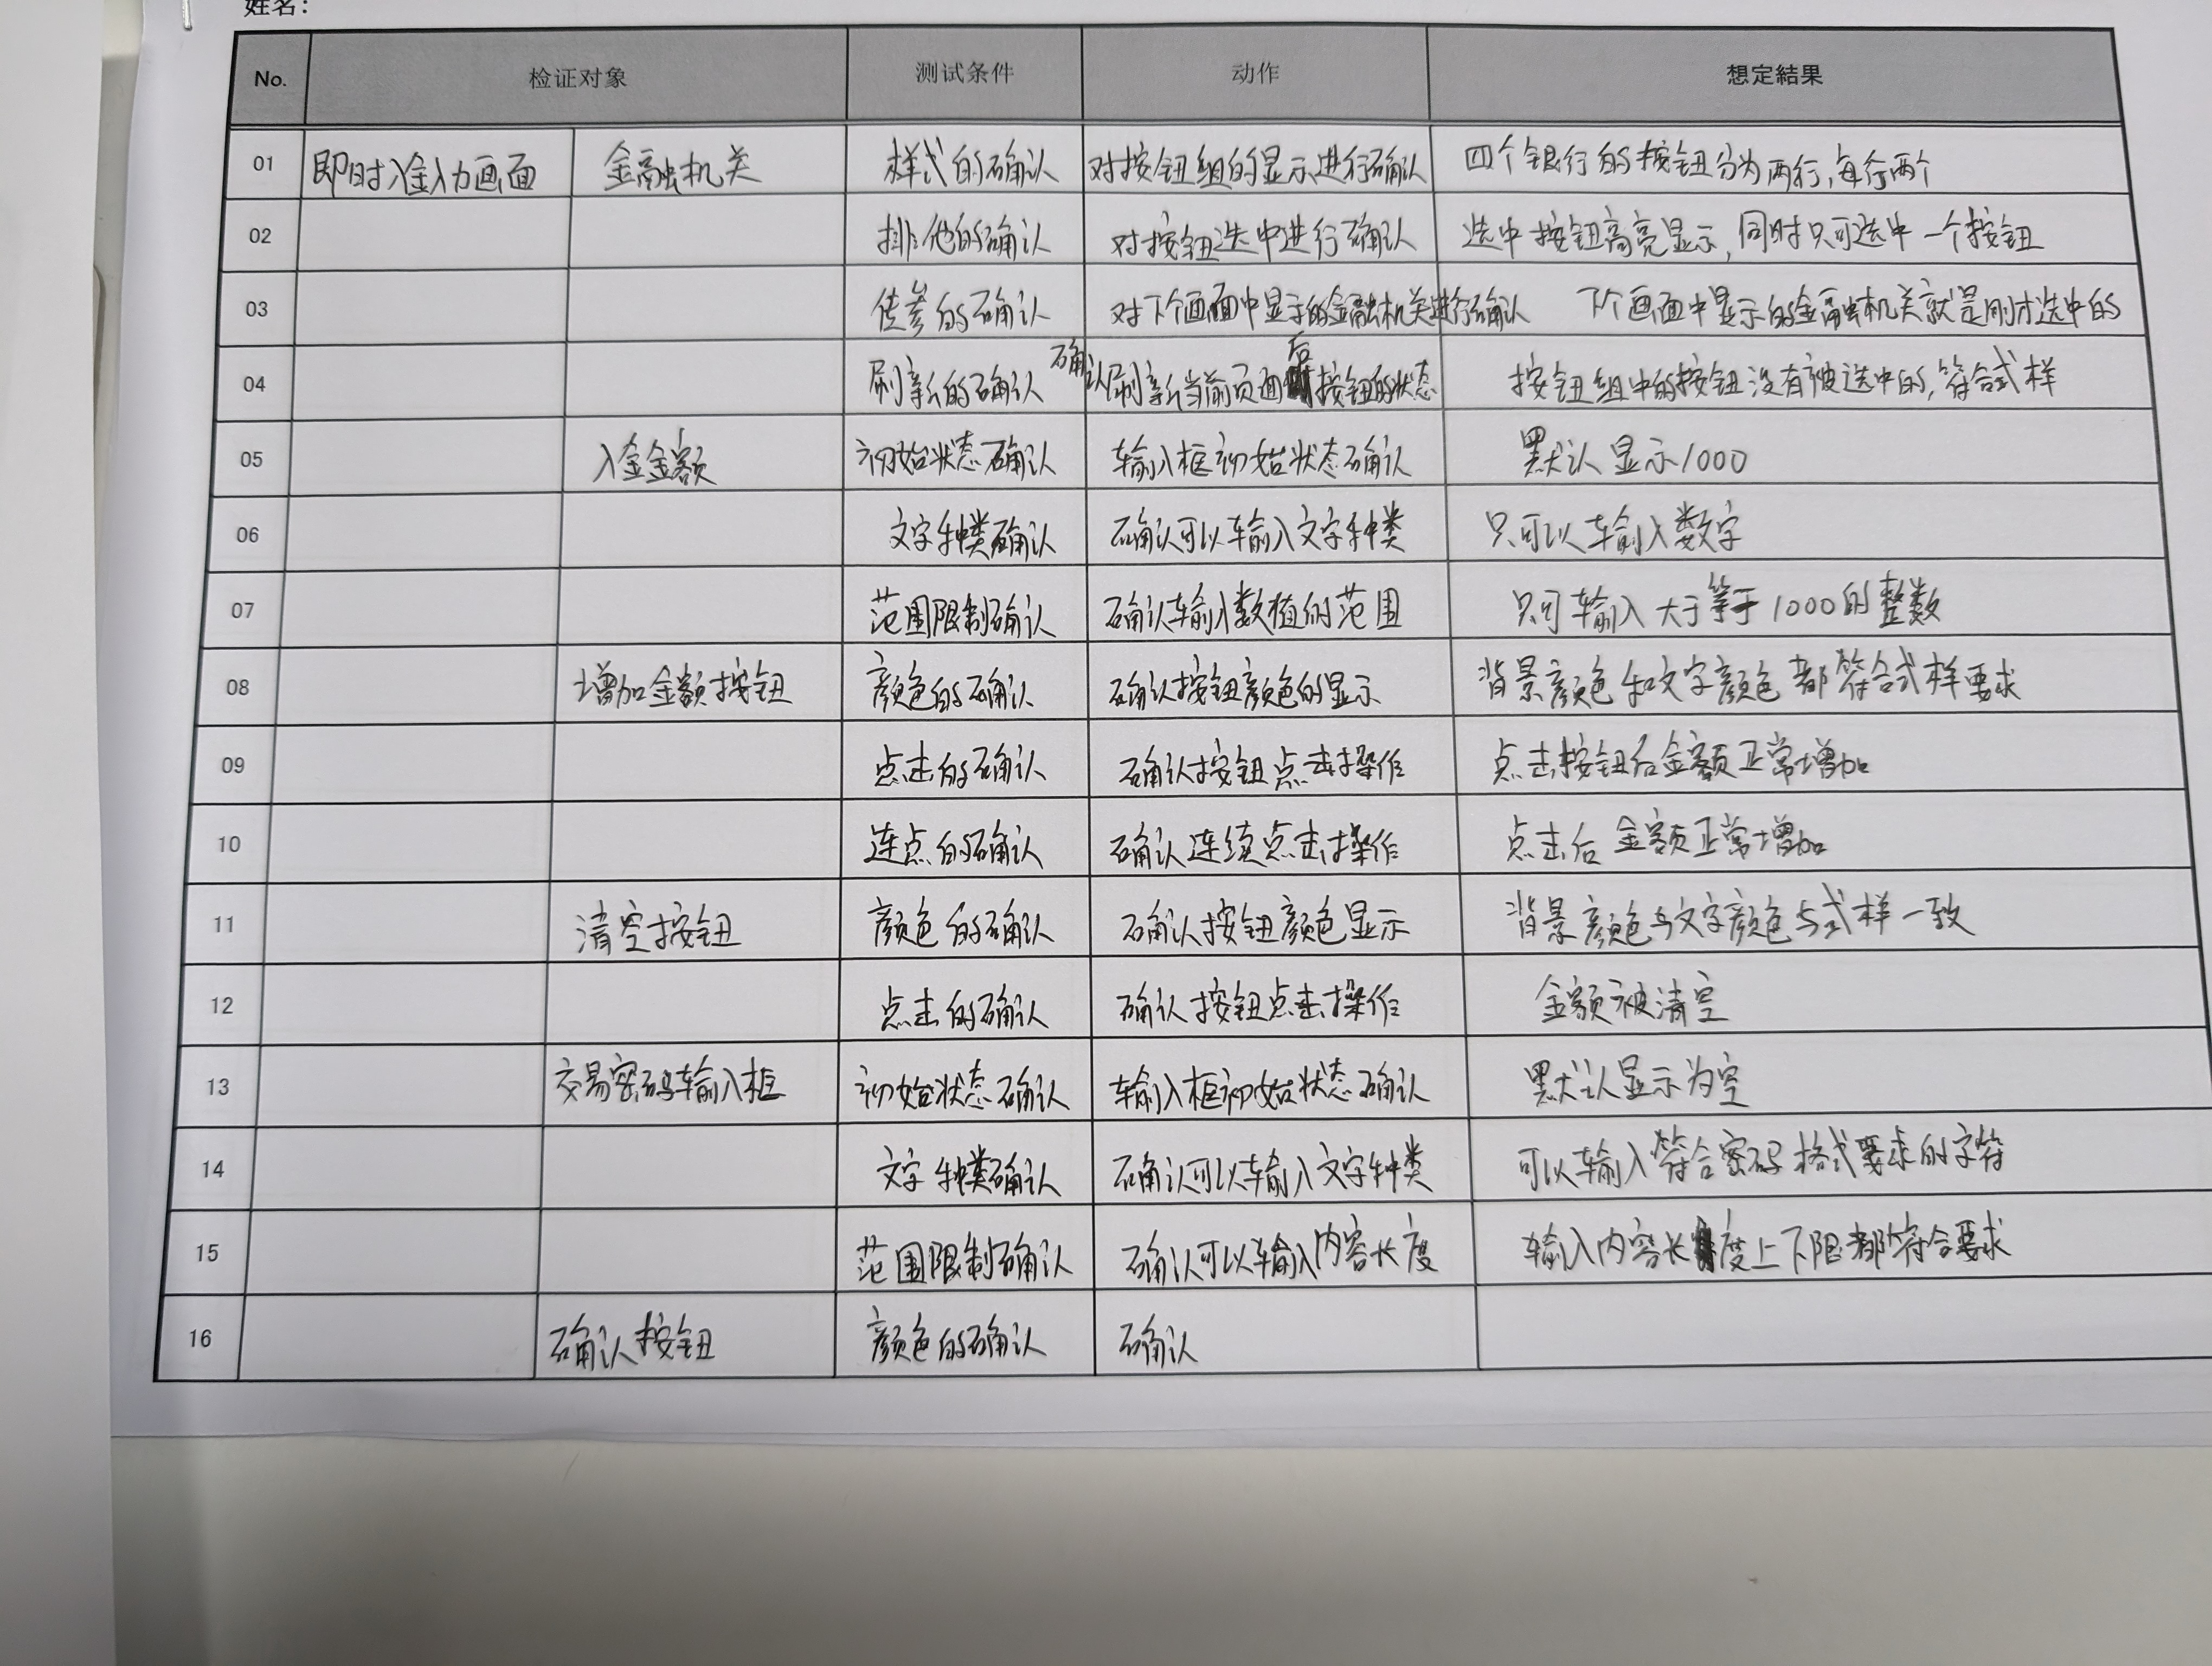 姓名:
No. 检证对象 测试条件 动作 想定結果
01 即时入金入力画面 金融机关 样式的确认 对按钮组的显示进行确认 四个银行的按钮分为两行,每行两个
02 排他的确认 对按钮选中进行确认 选中按钮高亮显示,同时只可选中一个按钮
03 传参的确认 对下个画面中显示的金融机关进行确认 下个画面中显示的金融机关就是刚才选中的
04 刷新的确认 确认刷新当前页面后按钮的状态 按钮组中的按钮没有被选中的,符合式样
05 入金金额 初始状态确认 输入框初始状态确认 默认显示1000
06 文字种类确认 确认可以输入文字种类 只可以输入数字
07 范围限制确认 确认输入数值的范围 只可输入大于等于1000的整数
08 增加金额按钮 颜色的确认 确认按钮颜色的显示 背景颜色和文字颜色都符合式样要求
09 点击的确认 确认按钮点击操作 点击按钮后金额正常增加
10 连点的确认 确认连续点击操作 点击后金额正常增加
11 清空按钮 颜色的确认 确认按钮颜色显示 背景颜色与文字颜色与式样一致
12 点击的确认 确认按钮点击操作 金额被清空
13 交易密码输入框 初始状态确认 输入框初始状态确认 默认显示为空
14 文字种类确认 确认可以输入文字种类 可以输入符合密码格式要求的字符
15 范围限制确认 确认可以输入内容长度 输入内容长度上下限都符合要求
16 确认按钮 颜色的确认 确认